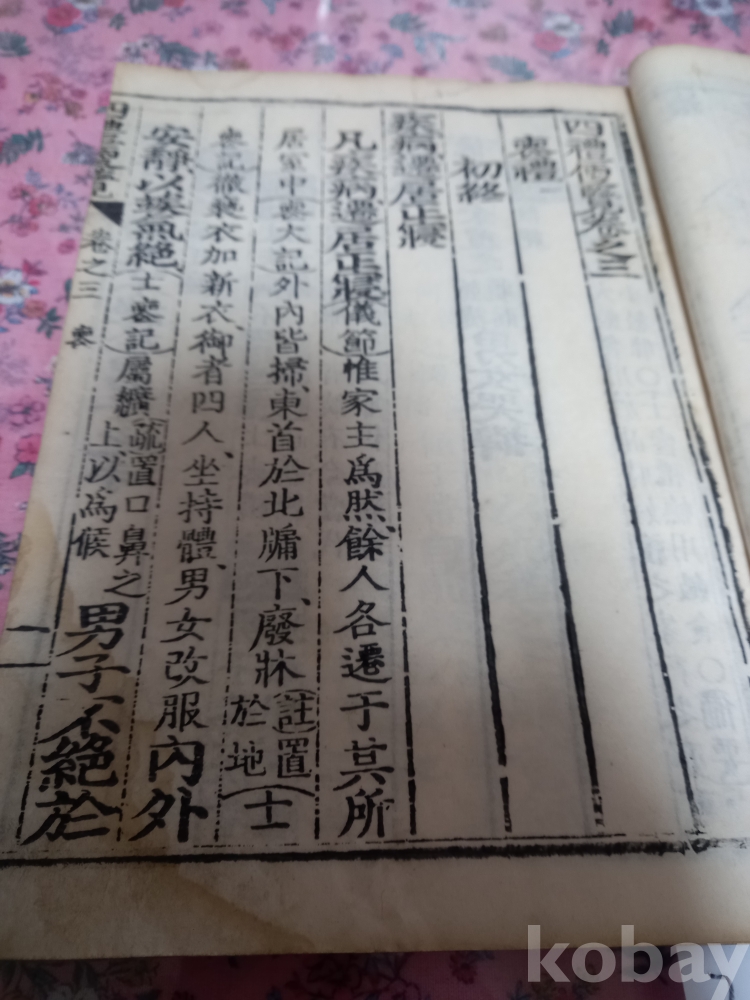 四禮便覽卷之三
喪禮一
初終
疾病遷居正寢
凡疾病遷居正寢儀節惟家主爲然餘人各遷于其所
居室中喪大記外內皆掃東首於北牖下廢牀註置於地士
喪記徹褻衣加新衣御者四人坐持體男女改服內外
安靜以俟氣絶士喪記屬纊疏置口鼻之上以爲候男子不絶於
四禮便覽 卷之三 喪 一
kobay